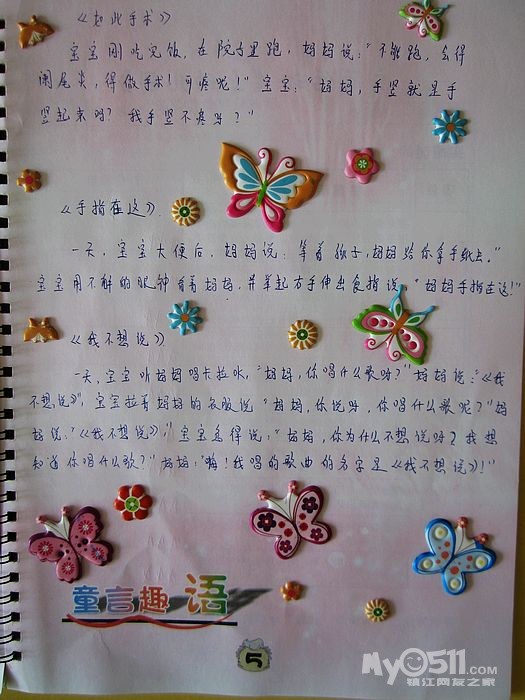 《如此手术》
宝宝刚吃完饭，在院子里跑，妈妈说："不能跑，会得
阑尾炎，得做手术！可疼呢！"宝宝："妈妈，手竖就是手
竖起来吗？我手竖不疼呀？"
《手指在这》
一天，宝宝大便后，妈妈说：等着孩子，妈妈给你拿手纸去。"
宝宝用不解的眼神看着妈妈，并举起右手伸出食指说："妈妈手指在这！"
《我不想说》
一天，宝宝听妈妈唱卡拉OK，"妈妈，你唱什么歌呀？"妈妈说："《我
不想说》"，宝宝拉着妈妈的衣服说"妈妈，你说呀，你唱什么歌呢？"妈
妈说："《我不想说》，"宝宝急得说，"妈妈，你为什么不想说呀？我想
知道你唱什么歌？"妈妈："嗨！我唱的歌曲的名字是《我不想说》！"
童言趣语
5
My0511.com
镇江网友之家